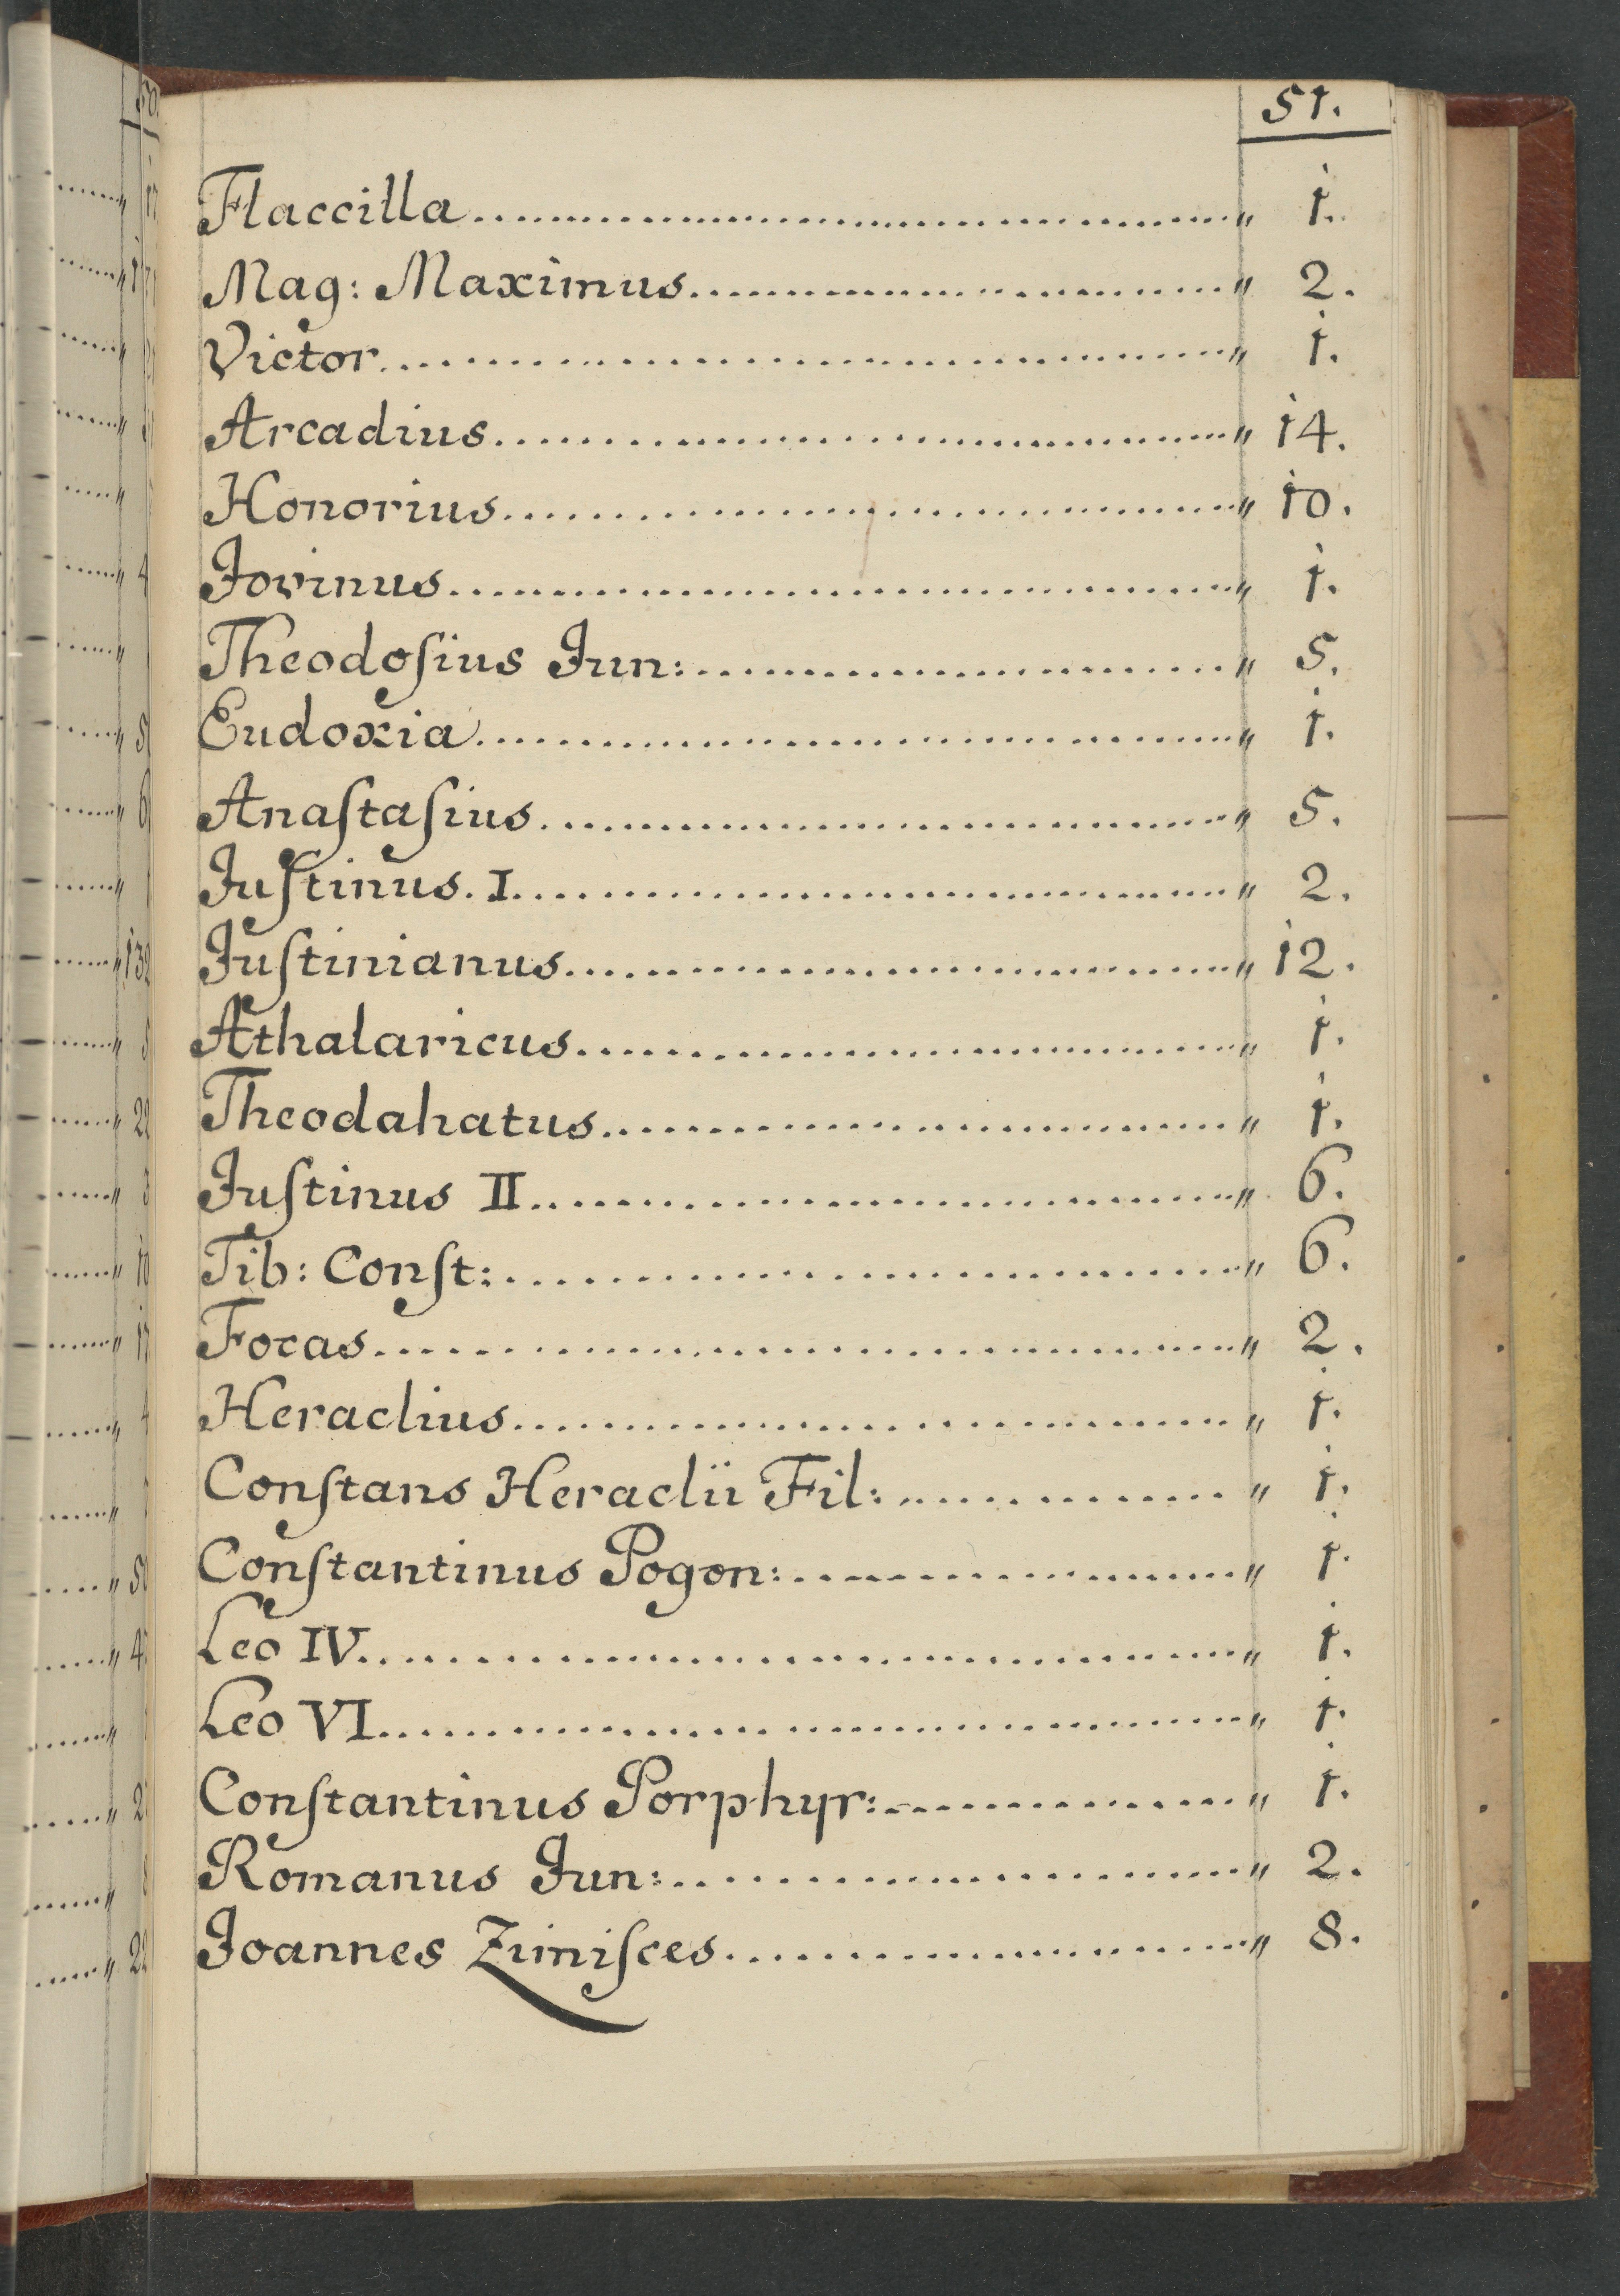 51.
Flaccilla........................................„ 1.
Mag: Maximus........................................„ 2.
Victor........................................„ 1.
Arcadius........................................„ 14.
Honorius........................................„ 10.
Jovinus........................................„ 1.
Theodoſius Jun:........................................„ 5.
Eudoxia........................................„ 1.
Anaſtaſius........................................„ 5.
Juſtinus. I........................................„ 2.
Juſtinianus........................................„ 12.
Athalaricus........................................„ 1.
Theodahatus........................................„ 1.
Juſtinus II........................................„ 6.
Tib: Conſt:........................................„ 6.
Focas........................................„ 2.
Heraclius........................................„ 1.
Conſtans Heraclii Fil:........................................„ 1.
Conſtantinus Pogon:........................................„ 1.
Leo IV........................................„ 1.
Leo VI........................................„ 1.
Conſtantinus Porphyr:........................................„ 1.
Romanus Jun:........................................„ 2.
Joannes Zimiſces........................................„ 8.